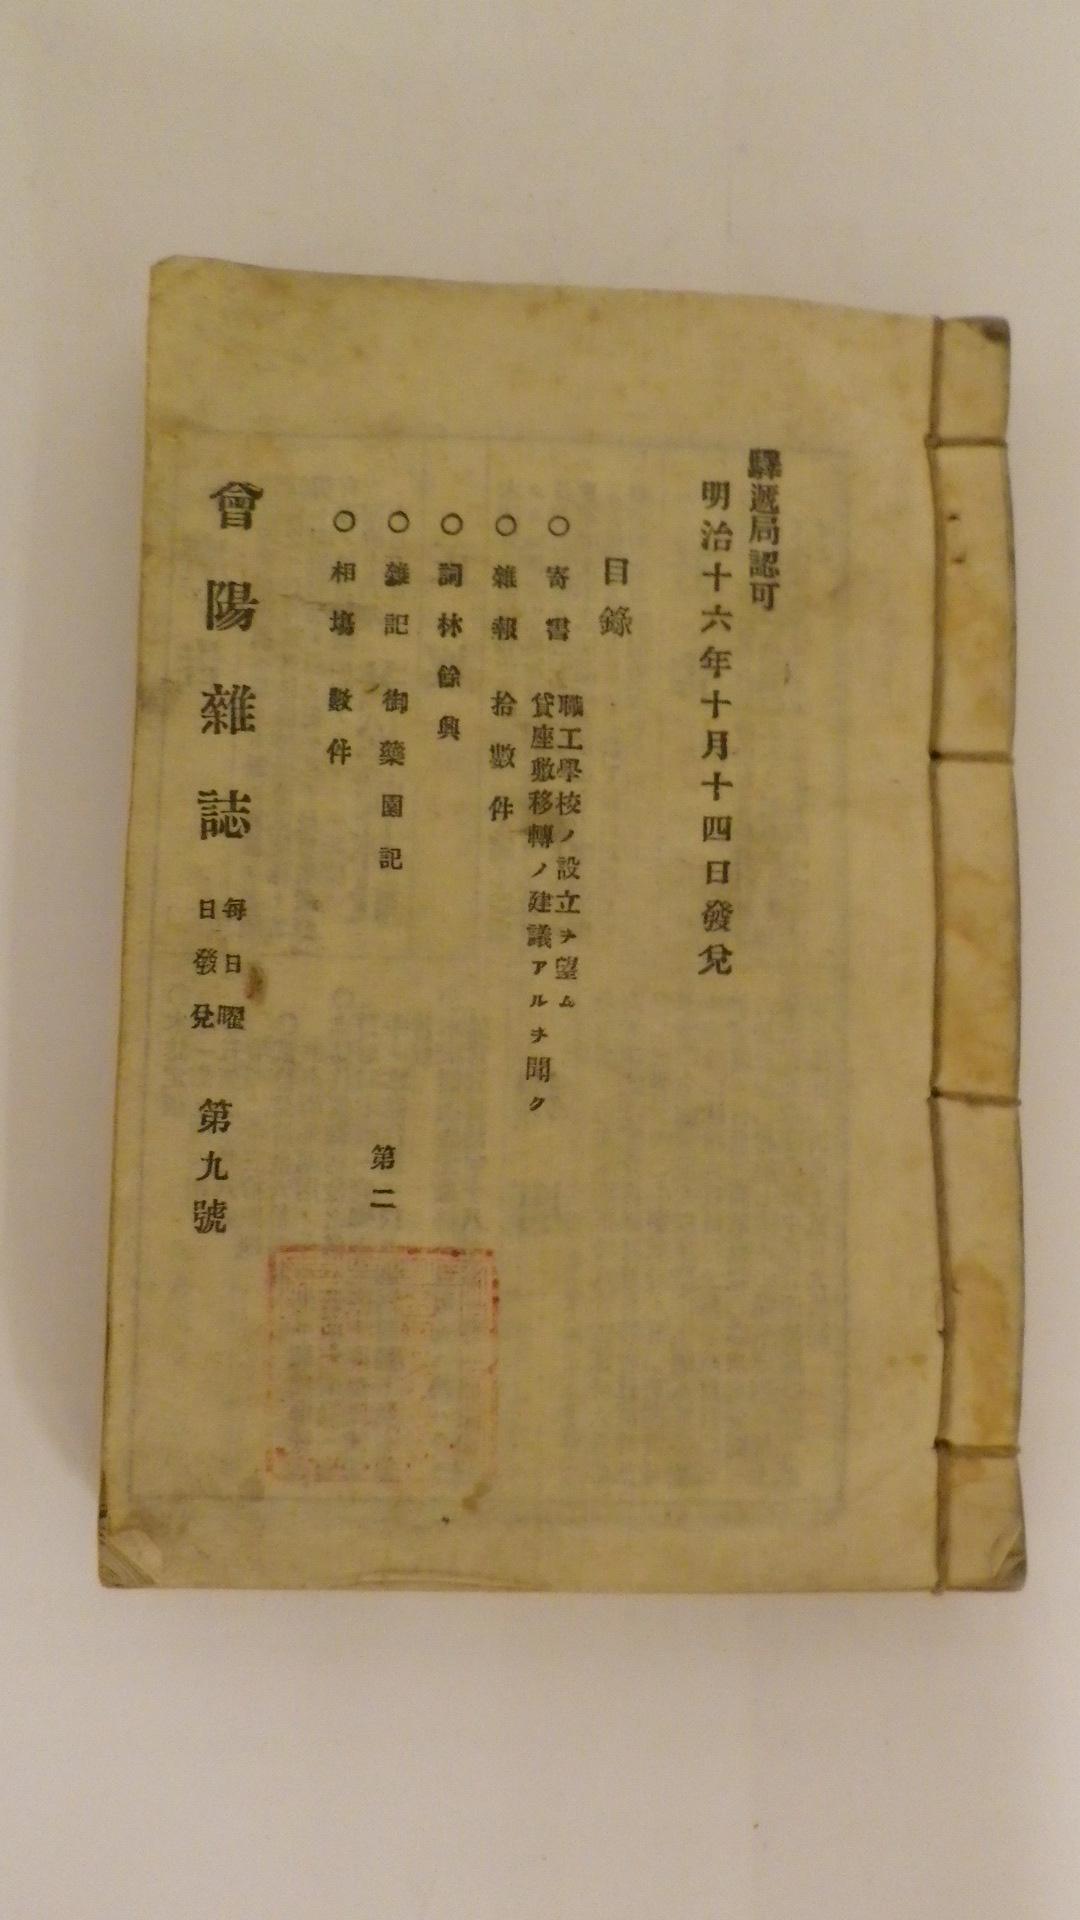 驛遞局認可
明治十六年十月十四日發兌
目錄
○寄書 職工學校ノ設立ヲ望ム
貸座敷移轉ノ建議アルヲ聞ク
○雜報 拾數件
○詞林餘興
○雜記 御藥園記 第二
○相塲 數件
會陽雜誌 每日曜
日發兌 第九號